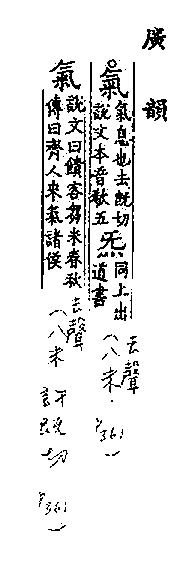 廣韻
氣 氣息也去旣切說文本音欷五 炁 同上出道書
去聲
(八未.
P361)
氣 說文曰饋客芻米春秋傳曰齊人來氣諸侯
去聲
(八未
許旣切
P361)